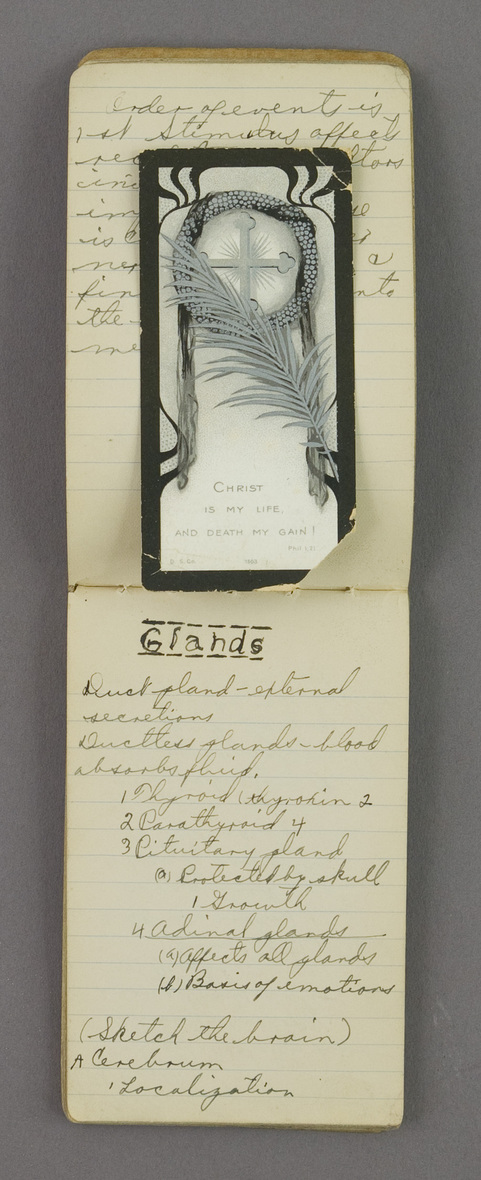 Order of events is
1st Stimulus affects
the
CHRIST
IS MY LIFE,
AND DEATH MY GAIN!
PHIL 1.21
Glands
Duct gland - external
secretions
Ductless glands - blood
absorbs fluid.
1 Thyroid (thyroxin 2
2 Parathyroid 4
3 Pituitary gland
(a) Protected by skull
1 Growth
4 Adinal glands
(a) Affects all glands
(b) Basis of emotions
(Sketch the brain)
A Cerebrum
1 Localization